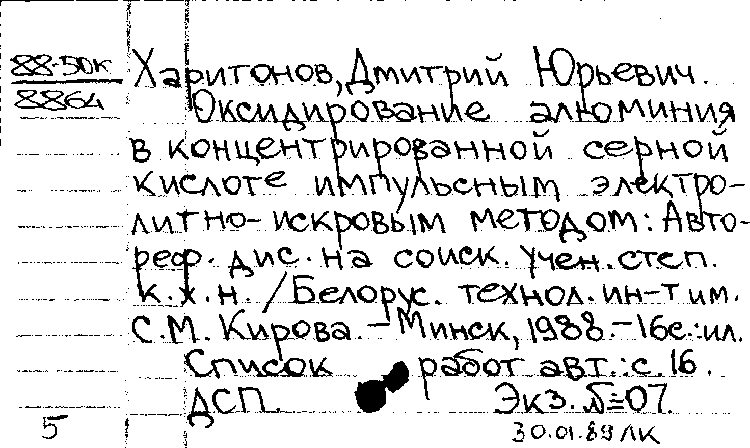 88-50к
8864
Харитонов, Дмитрий Юрьевич.
Оксидирование алюминия
в концентрированной серной
кислоте импульсным электро-
литно-искровым методом: Авто-
реф. дис. на соиск. учен. степ.
к.х.н. / Белорус. технол. ин-т им.
С.М. Кирова. – Минск, 1988. – 16с.: ил.
Список работ авт.: с. 16.
ДСП. Экз. №07.
5
30.01.89 ЛК